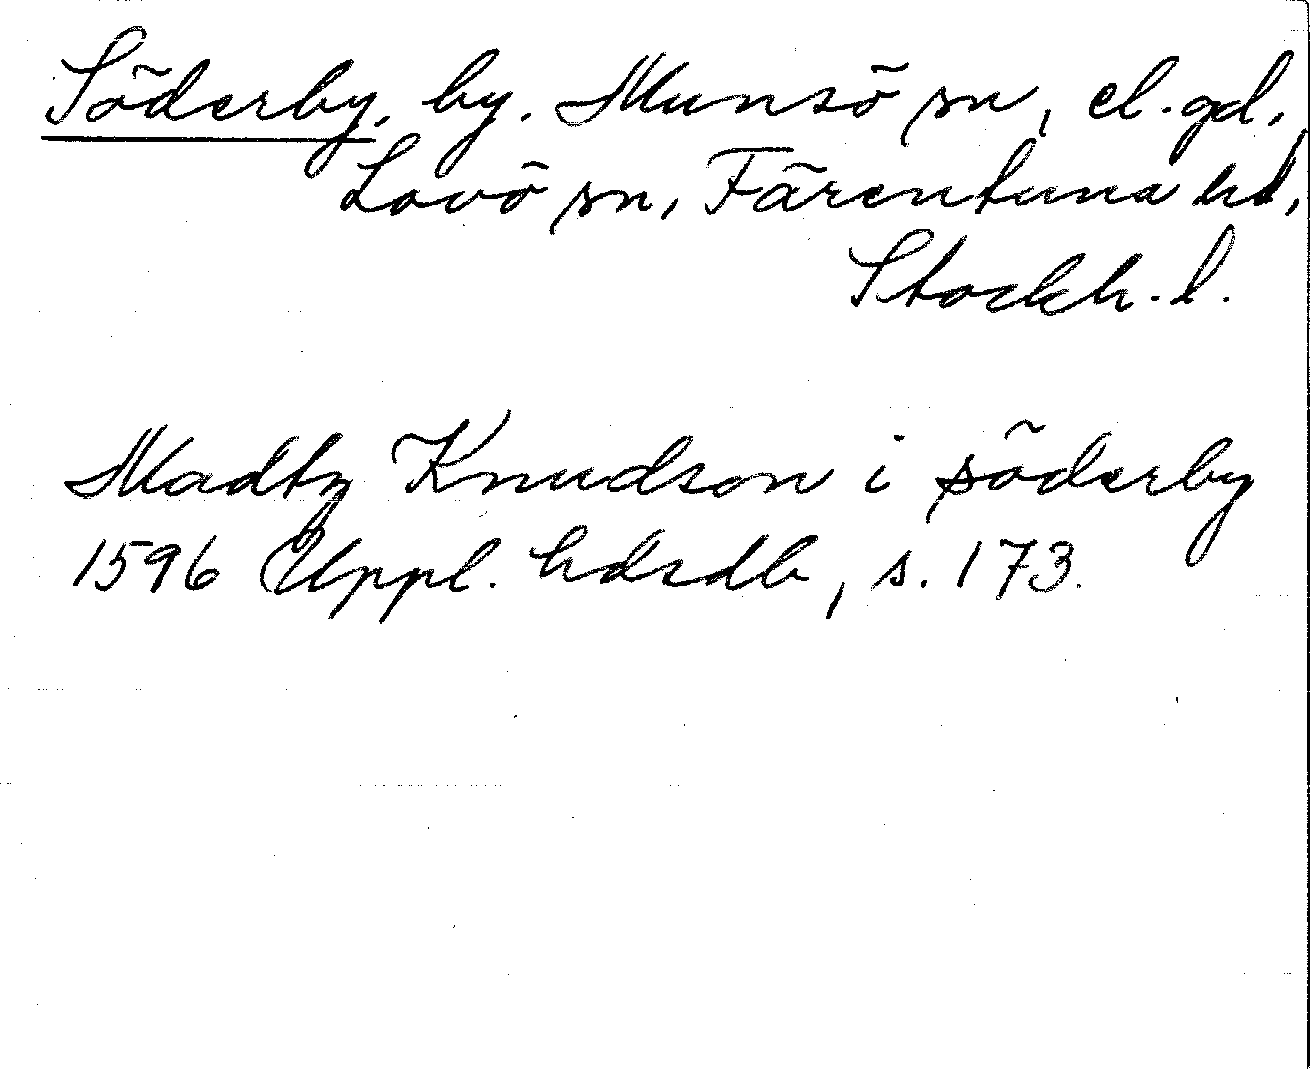 Söderby, by. Munsö sn, el. gd,
Lovö sn, Färentuna hd,
Stockh. l.
Madtz Knudson i söderby
1596 Uppl. hdrdb, s. 173.